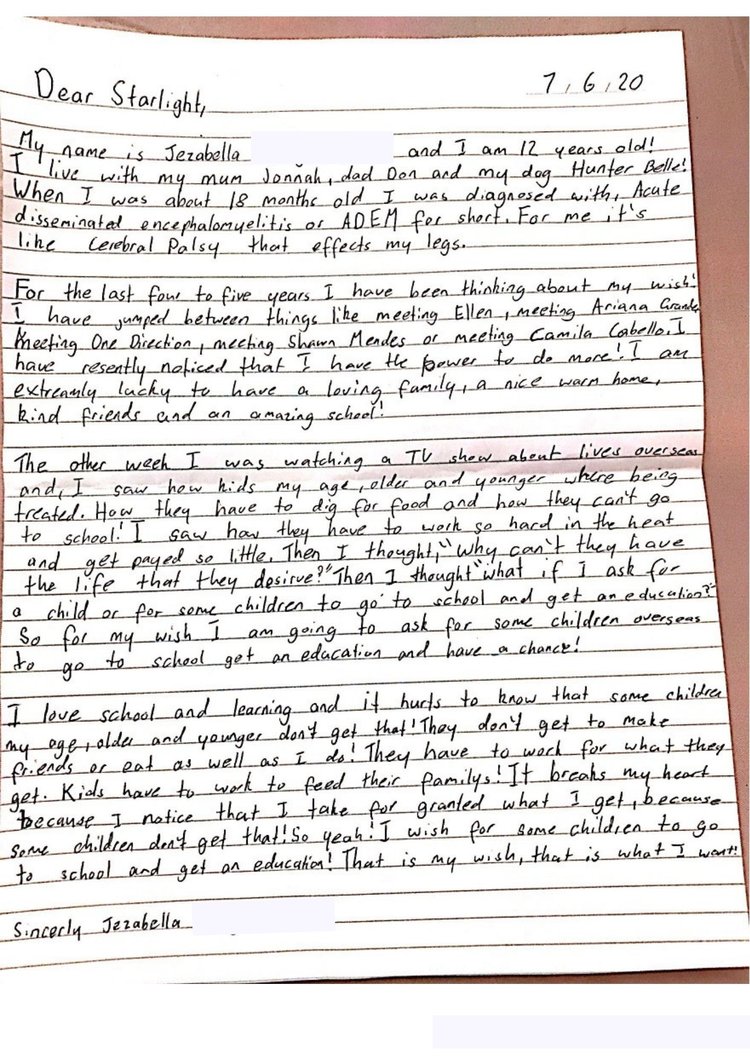 7, 6, 20
Dear Starlight,
My name is Jezabella and I am 12 years old!
I live with my mum Jonnah, dad Don and my dog Hunter Belle!
When I was about 18 months old I was diagnosed with, Acute
disseminated encephalomyelitis or ADEM for short. For me it's
like Cerebral Palsy that effects my legs.
For the last four to five years I have been thinking about my wish!
I have jumped between things like meeting Ellen, meeting Ariana Grande
meeting One Direction, meeting Shawn Mendes or meeting Camila Cabello. I
have resently noticed that I have the power to do more! I am
extreamly lucky to have a loving family, a nice warm home,
kind friends and an amazing school!
The other week I was watching a TV show about lives overseas
and, I saw how kids my age, older and younger where being
treated. How they have to dig for food and how they can't go
to school! I saw how they have to work so hard in the heat
and get payed so little. Then I thought, "Why can't they have
the life that they desirve?" Then I thought "what if I ask for
a child or for some children to go to school and get an education?"
So for my wish I am going to ask for some children overseas
to go to school get an education and have a chance!
I love school and learning and it hurts to know that some children
my age, older and younger don't get that! They don't get to make
friends or eat as well as I do! They have to work for what they
get. Kids have to work to feed their familys! It breaks my heart
because I notice that I take for granted what I get, because
some children don't get that! So yeah! I wish for some children to go
to school and get an education! That is my wish, that is what I want!
Sincerly Jezabella